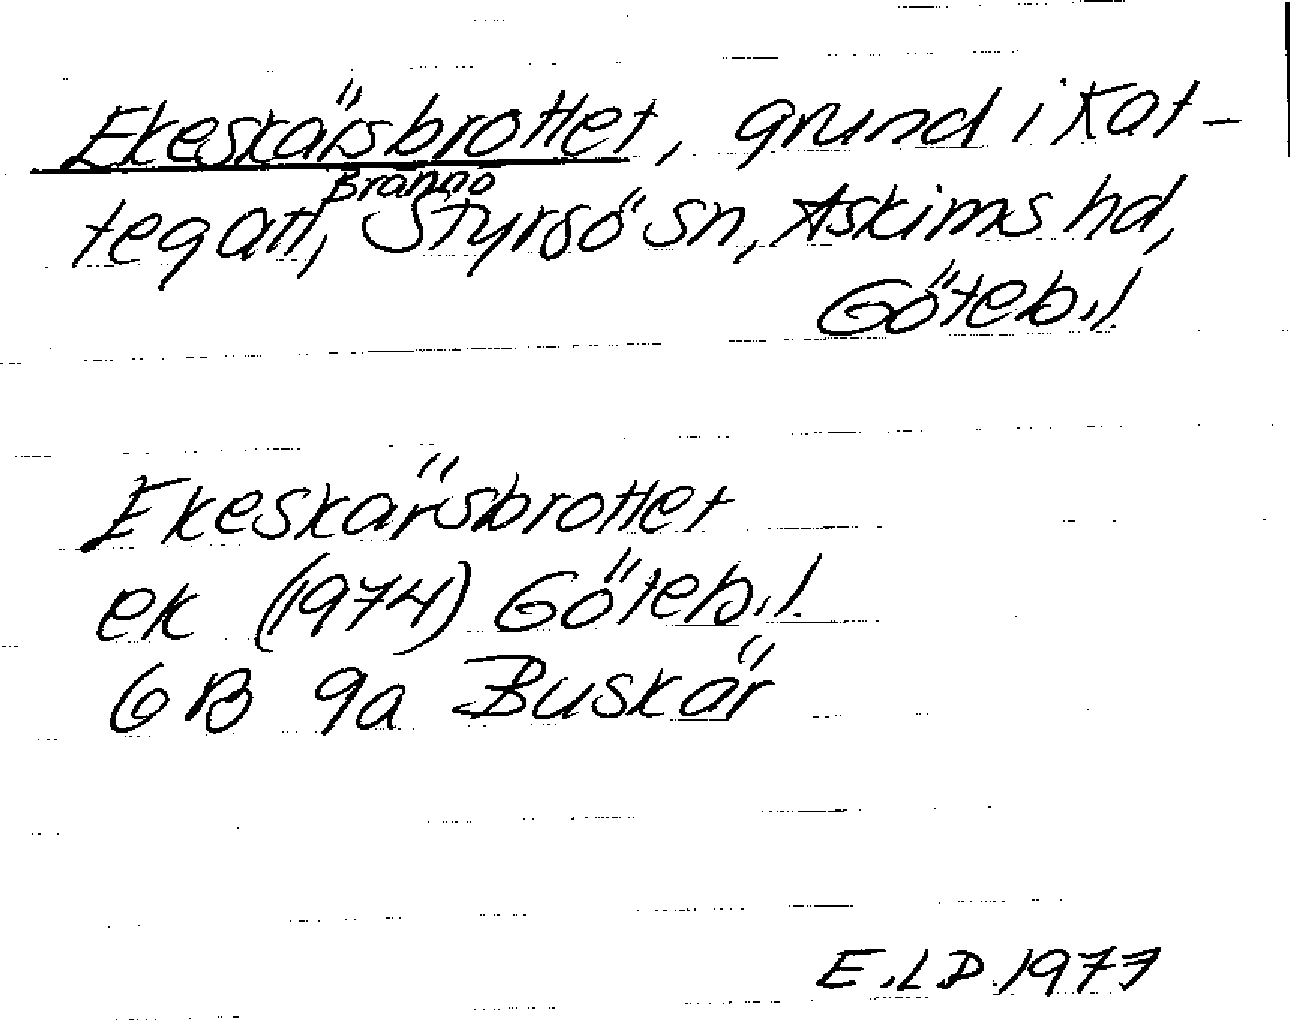 Ekeskärsbrottet, grund i Kat-
Brännö
tegatt, Styrsö sn, Askims hd,
Göteb.l.
Ekeskärsbrottet
ek (1974) Göteb.l.
6B 9a Buskär
E.L.D. 1977